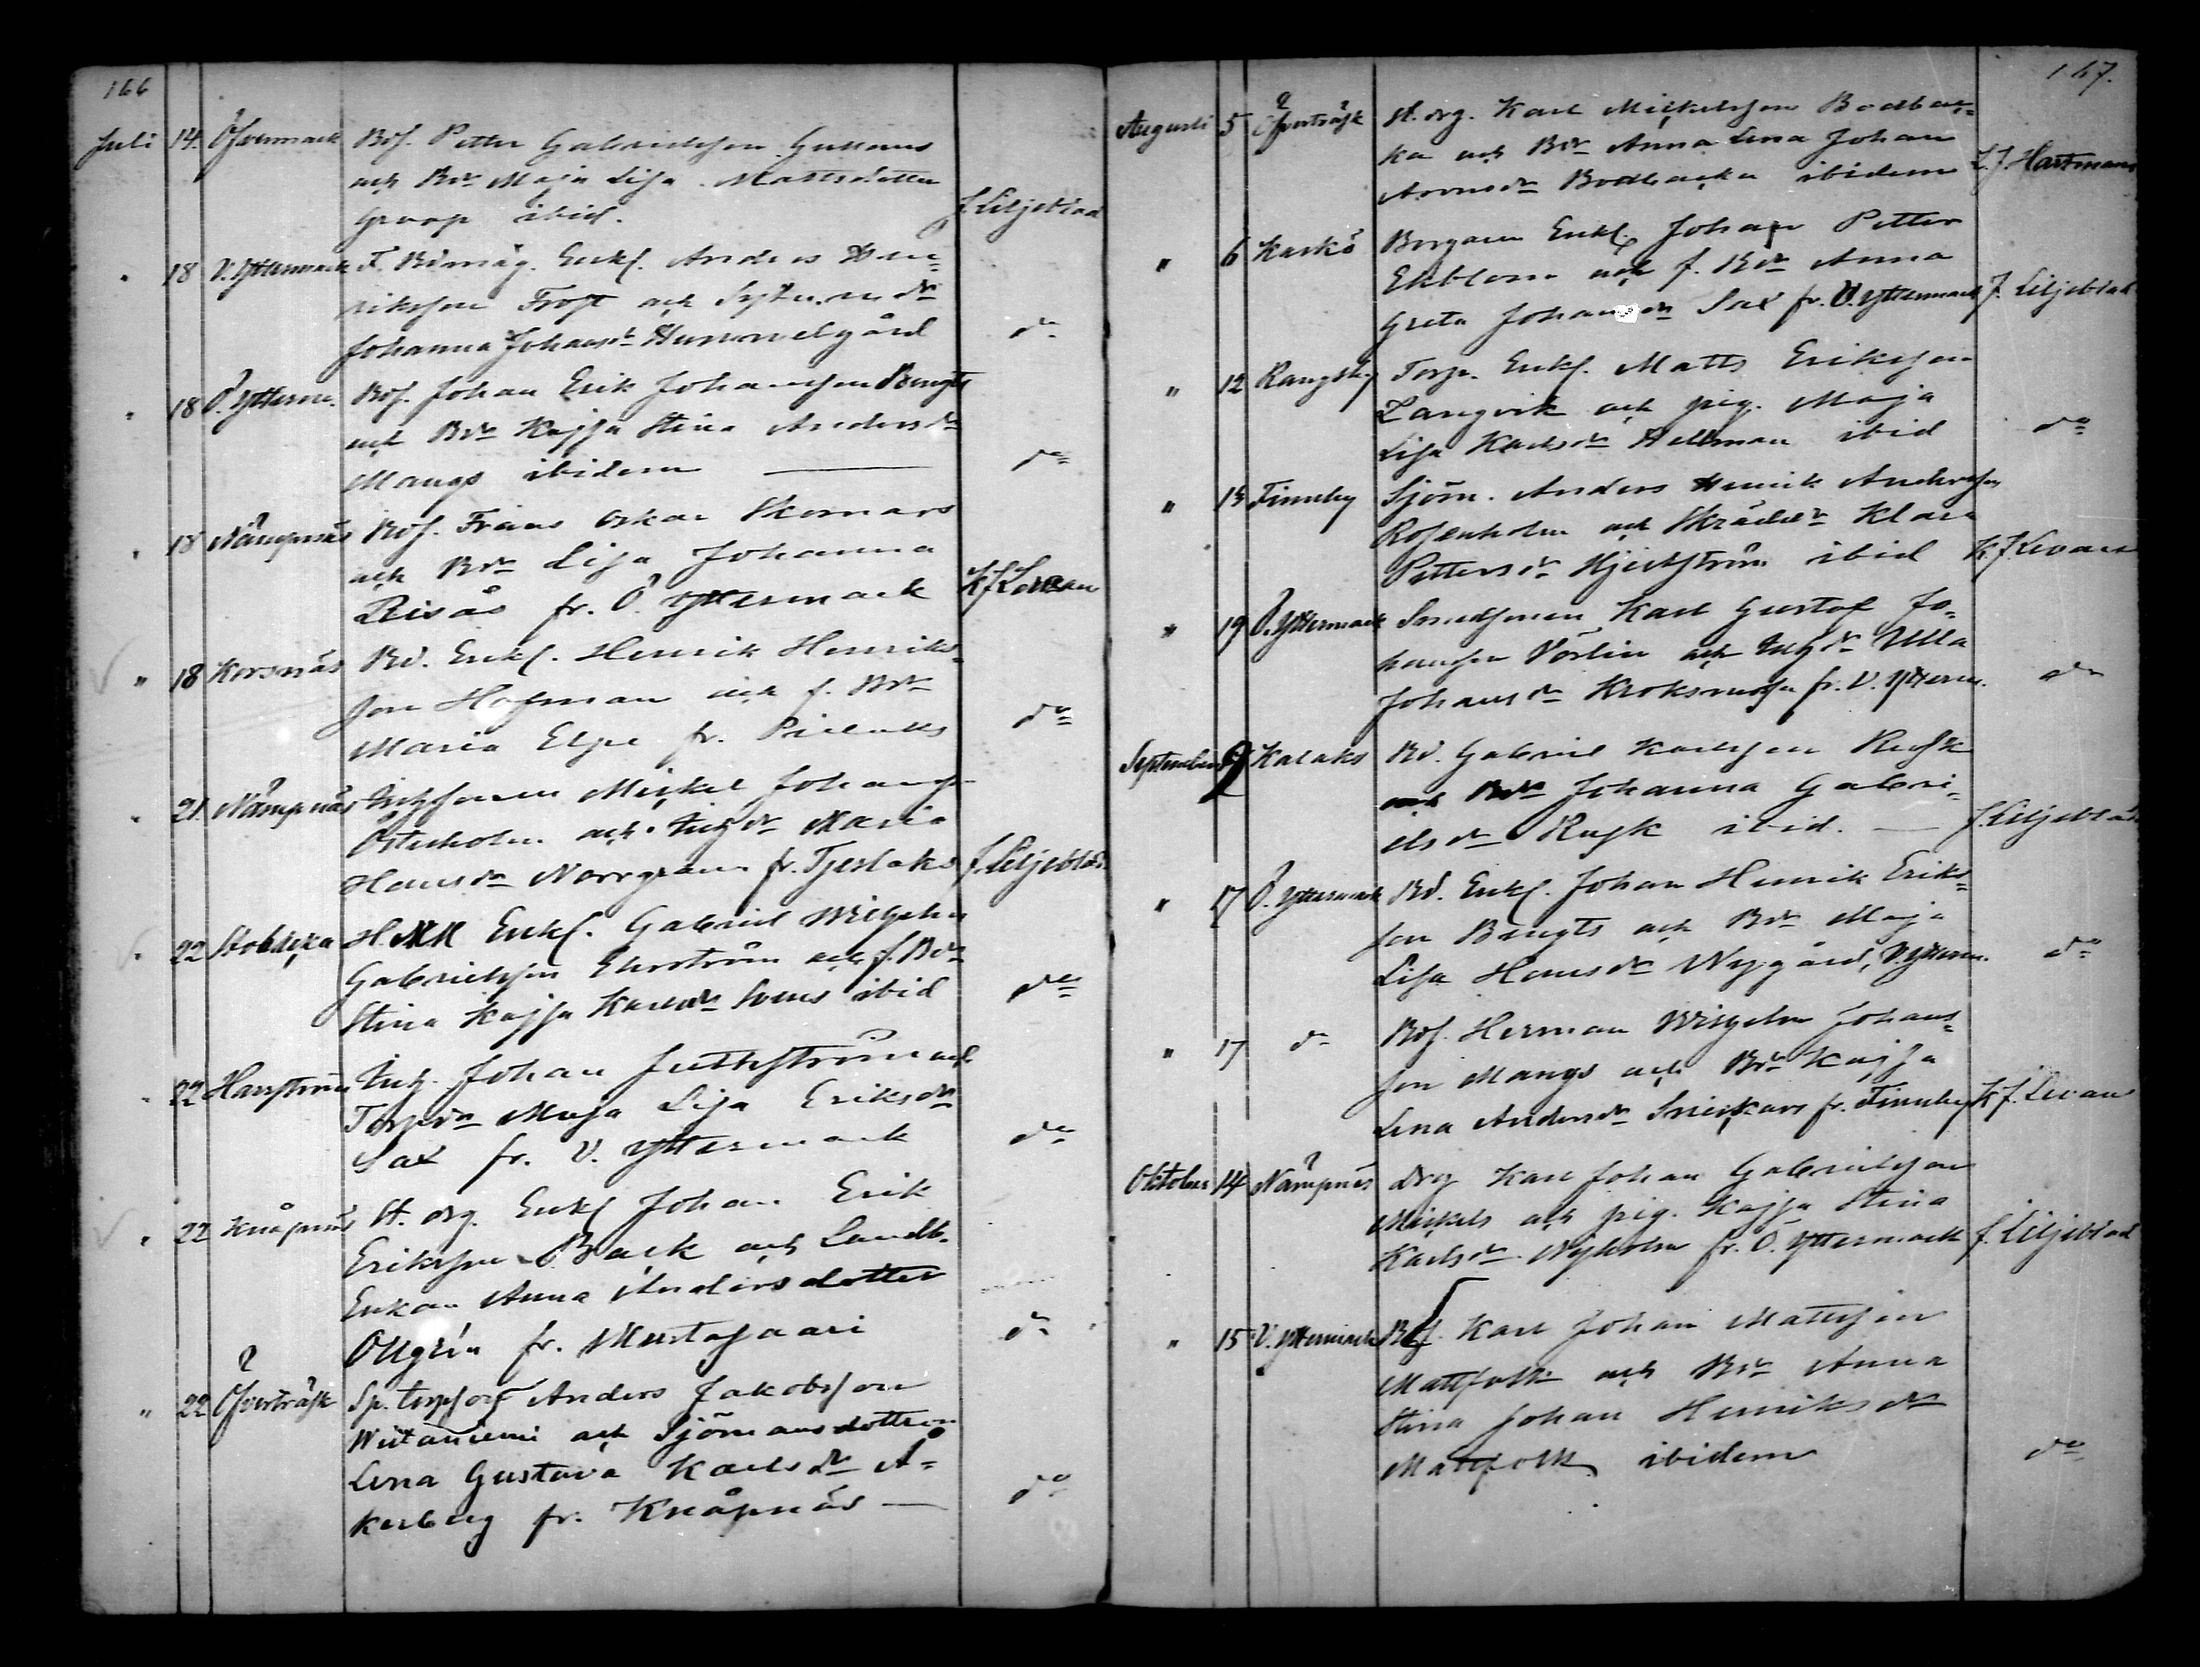 166
Juli 14. Öfvermark Bds. Petter Gabrielsson Gullans
och Bdr Maja Lisa Mattsdotter
Groop ibid. J. Liljeblad
" 18 V. Yttermark F. Bdmåg. Enkl. Anders Hen=
riksson Frost och Sytn.m.dr
Johanna Johansdr Hummelgård do
" 18 Ö. Ytterm. Bds. Johan Erik Johansson Bengts
och Bdr Kajsa Stina Andersdr
Mangs ibidem — do
" 18 Nämpnäs Bds. Frans Oskar Skomars
och Bdr Lisa Johanna
Risås fr. Ö. Yttermark K J Levan
" 18 Korsnäs Bd. Enkl. Henrik Henriks=
son Hofman och f. Bdr
Maria Elge fr. Pielaks do
" 21. Nämpnäs Inhysonen Mickel Johanss
Österholm och Inhdr Maria
Hansdr Norrgran fr. Tjerlaks J. Liljeblad
" 22 Stobäcka Enkl. Gabriel Wilhelm
Gabrielsson Ehrström och f. Bdr
Stina Kajsa Karlsdr Svens ibid do
" 22 Harrström Inh. Johan Juthström och
Torpdr Maja Lisa Eriksdr
Sax fr. V. Yttermark do
" 22 Knåpnäs St. drg. Enkl Johan Erik
Eriksson Back och Landb.
Enkan Anna Andersdotter
Ollgrén fr. Mustasaari do
" 22 Öfverträsk Sp. torpson Anders Jakobsson
Wiitaniemi och Sjömansdottren
Lena Gustava Karlsdr Å=
kerberg fr. Knåpnäs — do
167.
Augusti 5 Öfverträsk St. drg. Karl Mickelsson Bodbac=
ka och Bdr Anna Lena Johan
Aronsdr Bodbacka ibidem L. J. Hartmans
" 6 Kaskö Borgaren Enkl. Johan Petter
Ekblom och f. Bdr Anna
Greta Johansdr Sax fr. V. Yttermark J. Liljeblad
" 12 Rangsby Torp. Enkl. Matts Eriksson
Långvik och pig. Maja
Lisa Karlsdr Hellman ibid do
" 15 Finnby Sjöm. Anders Henrik Andersson
Rosenholm och Skräddr Klara
Pettersdr Hjertström ibid K. J Levan
" 19 Ö. Yttermark Smedsonen Karl Gustaf Jo=
hansson Pörlin och Inhdr Ulla
Johansdr Kroksmossa fr. V. Ytterm. do
September 9 Kalaks Bd. Gabriel Karlsson Rusk
och Bdr Johanna Gabri=
elsdr Rusk ibid. — J. Liljeblad
" 17 Ö. Yttermark Bd. Enkl. Johan Henrik Eriks=
son Bengts och Bdr Maja
Lisa Hansdr Nygård, V. Ytterm. do
" 17 do Bds. Herman Wilhelm Johans=
son Mangs och Bdr Kajsa
Lena Andersdr Snickars fr. Finnby K J. Levan
Oktober 14 Nämpnäs Drg Karl Johan Gabrielsson
Mickels och pig. Kajsa Stina
Karlsdr Nyholm fr. Ö. Yttermark J. Liljeblad
" 15 V. Yttermark Bds. Karl Johan Mattsson
Mattfolk och Bdr Anna
Stina Johan Henriksdr
Mattfolk ibidem do